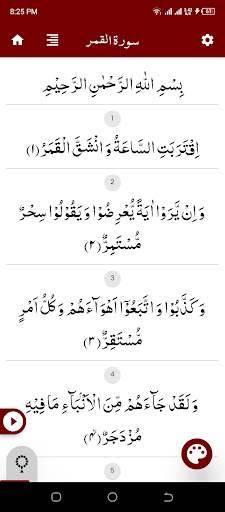 8:25 PM
61
سورة القمر
بِسْمِ اللّٰهِ الرَّحْمٰنِ الرَّحِيْمِ
1
اِقْتَرَبَتِ السَّاعَةُ وَانْشَقَّ الْقَمَرُ ﴿۱﴾
2
وَاِنْ يَّرَوْا اٰيَةً يُّعْرِضُوْا وَيَقُوْلُوْا سِحْرٌ
مُّسْتَمِرٌّ ﴿۲﴾
3
وَكَذَّبُوْا وَاتَّبَعُوْٓا اَهْوَآءَهُمْ وَكُلُّ اَمْرٍ
مُّسْتَقِرٌّ ﴿۳﴾
4
وَلَقَدْ جَآءَهُمْ مِّنَ الْاَنْۢبَآءِ مَا فِيْهِ
مُزْدَجَرٌ ﴿۴﴾
5